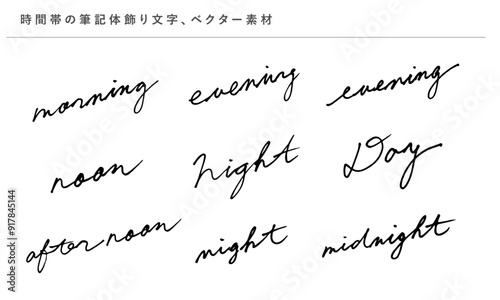 時間帯の筆記体飾り文字、ベクター素材
morning evening evening
noon Night Day
afternoon night midnight
Adobe Stock | #917845144